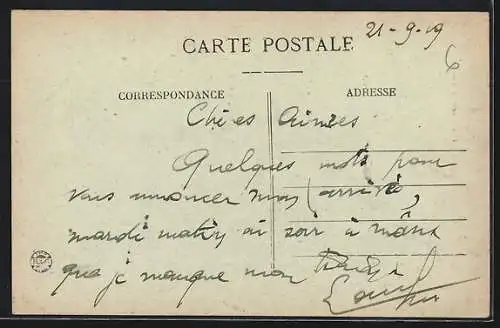 21-9-19
CARTE POSTALE
CORRESPONDANCE
ADRESSE
Chères Aimées
Quelques mots pour
vous annoncer mon arrivé,
mardi matin ou soir à moins
que je manque mon